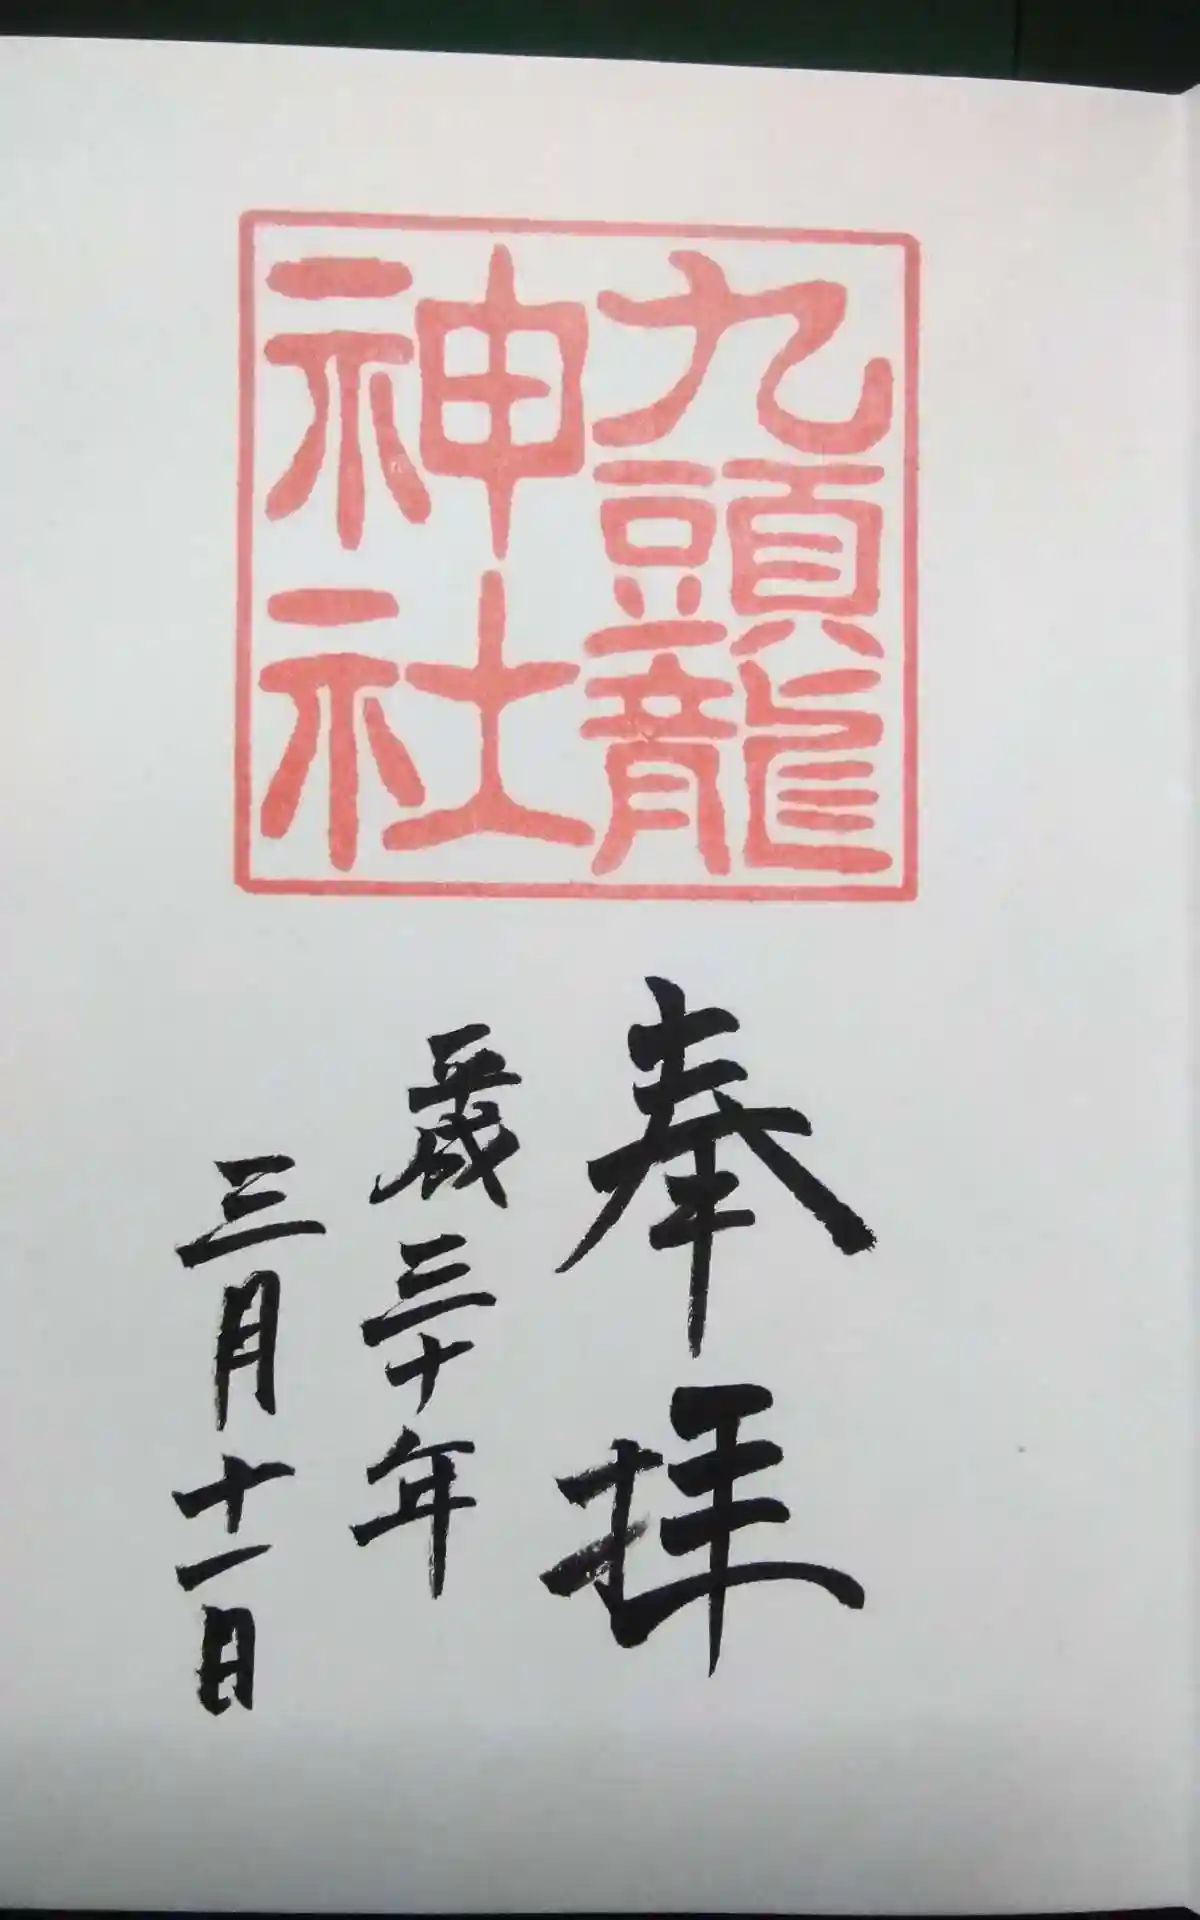 九頭龍
神社
奉拝
平成三十年
三月十一日